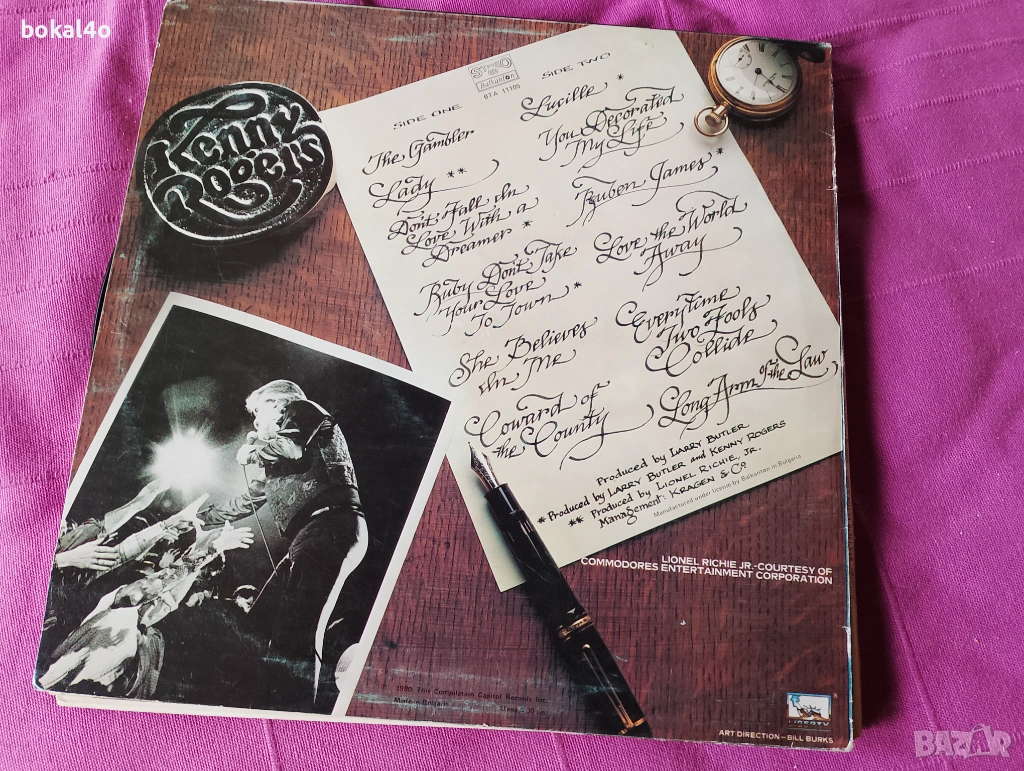 bokal4o
Kenny
Rogers
STEREO
Balkanton
BTA 11105
SIDE ONE
The Gambler
Lady **
Don't Fall In
Love With a
Dreamer *
Ruby Don't Take
Your Love
To Town *
She Believes
In Me
Coward of
the County
SIDE TWO
Lucille *
You Decorated
My Life
Ruben James *
Love the World
Away
Everytime
Two Fools
Collide
Long Arm of the Law
Produced by LARRY BUTLER
*Produced by LARRY BUTLER and KENNY ROGERS
** Produced by LIONEL RICHIE, JR.
Management: KRAGEN & CO
Manufactured under license by Balkanton in Bulgaria
LIONEL RICHIE JR.-COURTESY OF
COMMODORES ENTERTAINMENT CORPORATION
1980 This Compilation Capitol Records Inc.
Made in Bulgaria
LIBERTY
ART DIRECTION—BILL BURKS
BAZAR